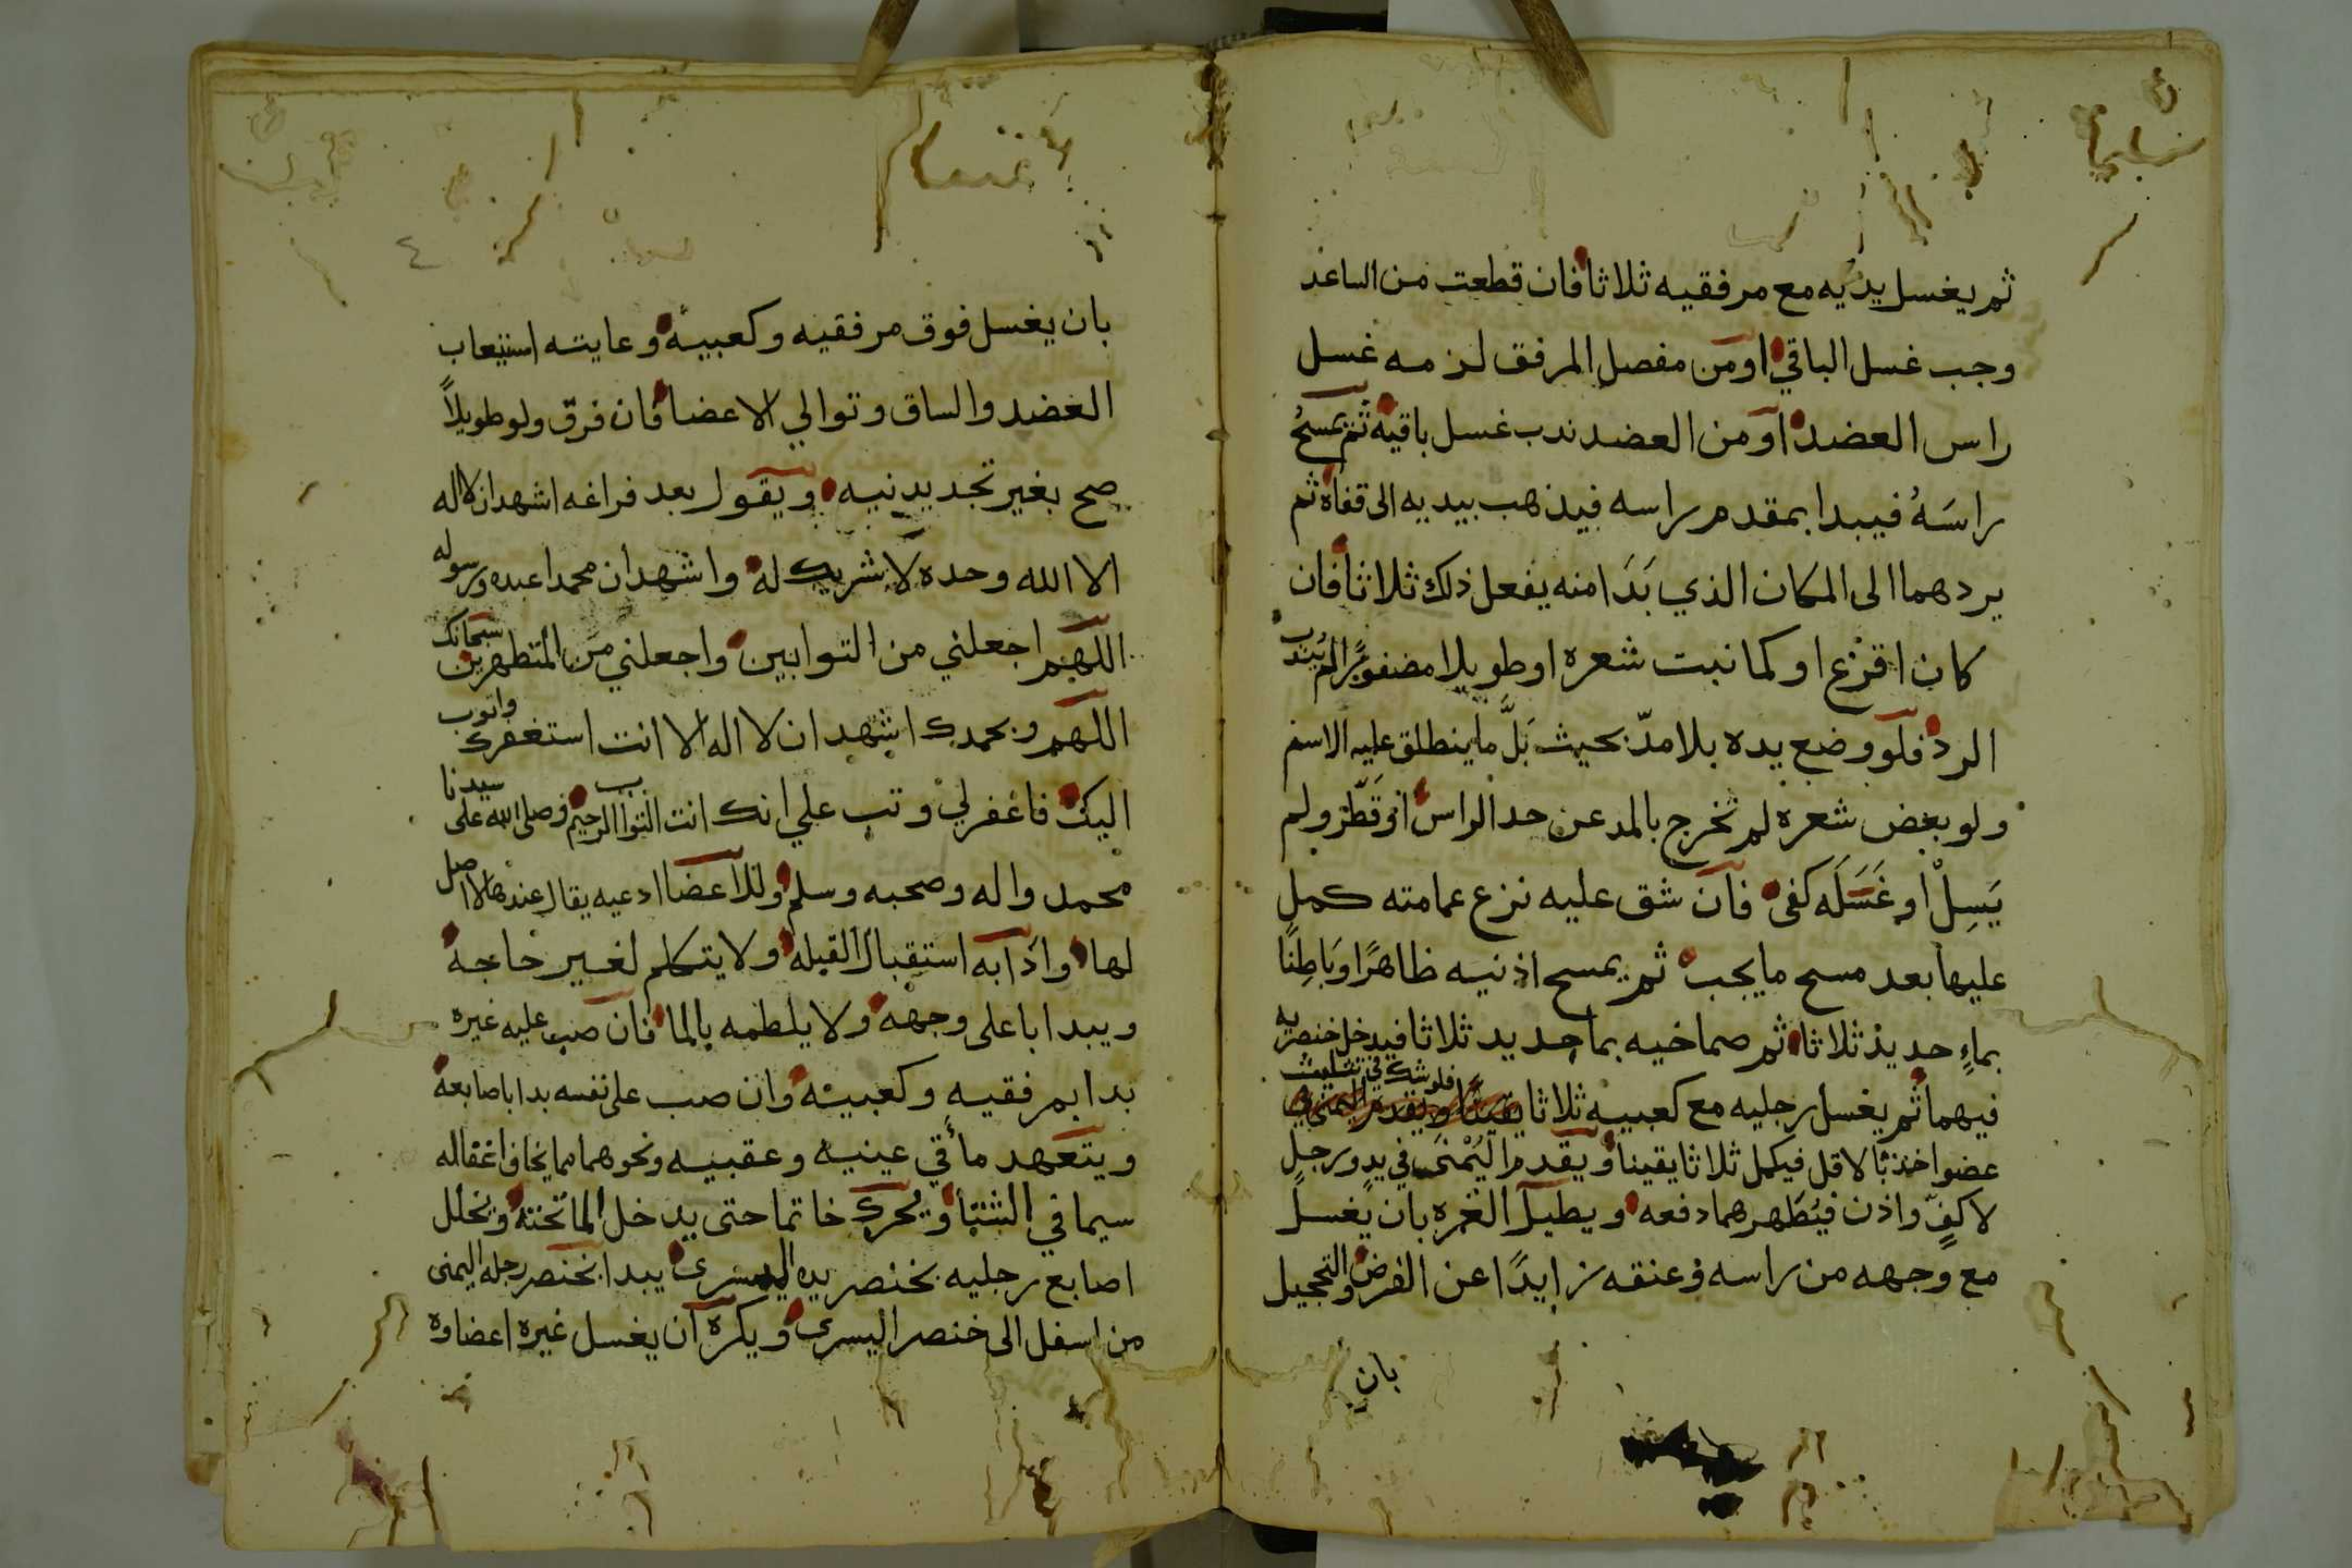 ثم يغسل يديه مع مرفقيه ثلاثا فان قطعت من الساعد
وجب غسل الباقي او من مفصل المرفق لزمه غسل
راس العضد او من العضد ندب غسل باقيه ثم يمسح
راسَهُ فيبدا بمقدم راسه فيذهب بيديه الى قفاه ثم
يردهما الى المكان الذي بَدَا منه يفعل ذلك ثلاثا فان
كان اقرع او كما نبت شعره او طويلا مضفورًا لم يُندب
الرد فلو وضع يده بلا مدّ بحيث بَلَّ ما ينطلق عليه الاسم
ولو بعض شعره لم تخرج بالمد عن حد الراس او قَطّر ولم
يَسِلْ او غَسَلَه كفى فان شق عليه نزع عمامته كمل
عليها بعد مسح ما يجب ثم يمسح اذنيه ظاهرًا وبَاطِنًا
بماءٍ جديد ثلاثا ثم صماخيه بما جديد ثلاثا فيدخل خنصريه
فيهما ثم يغسل رجليه مع كعبيه ثلاثا فلو شك في تثليث
عضو اخذ بالاقل فيكمل ثلاثا يقينا ويقدم اليُمْنَى في يدٍ ورجلٍ
لا كفٍّ واذن فيُطَهرهما دفعه ويطيل الغره بان يغسل
مع وجهه من راسه وعنقه زايدًا عن الفرض والتحجيل
بان
٤
بان يغسل فوق مرفقيه وكعبيه وغايته استيعاب
العضد والساق وتوالي الاعضا فان فرّق ولو طويلاً
صح بغير تجديد نيه ويقول بعد فراغه اشهد ان لا اله
الا الله وحده لا شريك له واشهد ان محمدا عبده ورسوله
اللهم اجعلني من التوابين واجعلني من المتطهرين سبحانك
اللهم وبحمدك اشهد ان لا اله الا انت استغفرك واتوب
اليك فاغفر لي وتب علي انك انت التواب الرحيم وصلى الله على سيدنا
محمد واله وصحبه وسلم وللاعضا ادعيه يقال عندها لا اصل
لها وادابه استقبال القبله ولا يتكلم لغير حاجه
ويبدا باعلى وجهه ولا يلطمه بالما فان صب عليه غيره
بدا بمرفقيه وكعبيه وان صب على نفسه بدا باصابعه
ويتعهد مأقي عينيه وعقبيه ونحوهما مما يخاف اغفاله
سيما في الشتا ويحرك خاتما حتى يدخل الما تحته ويخلل
اصابع رجليه بخنصر يده اليسرى يبدا بخنصر رجله اليمنى
من اسفل الى خنصر اليسرى ويكره ان يغسل غيره اعضاوه